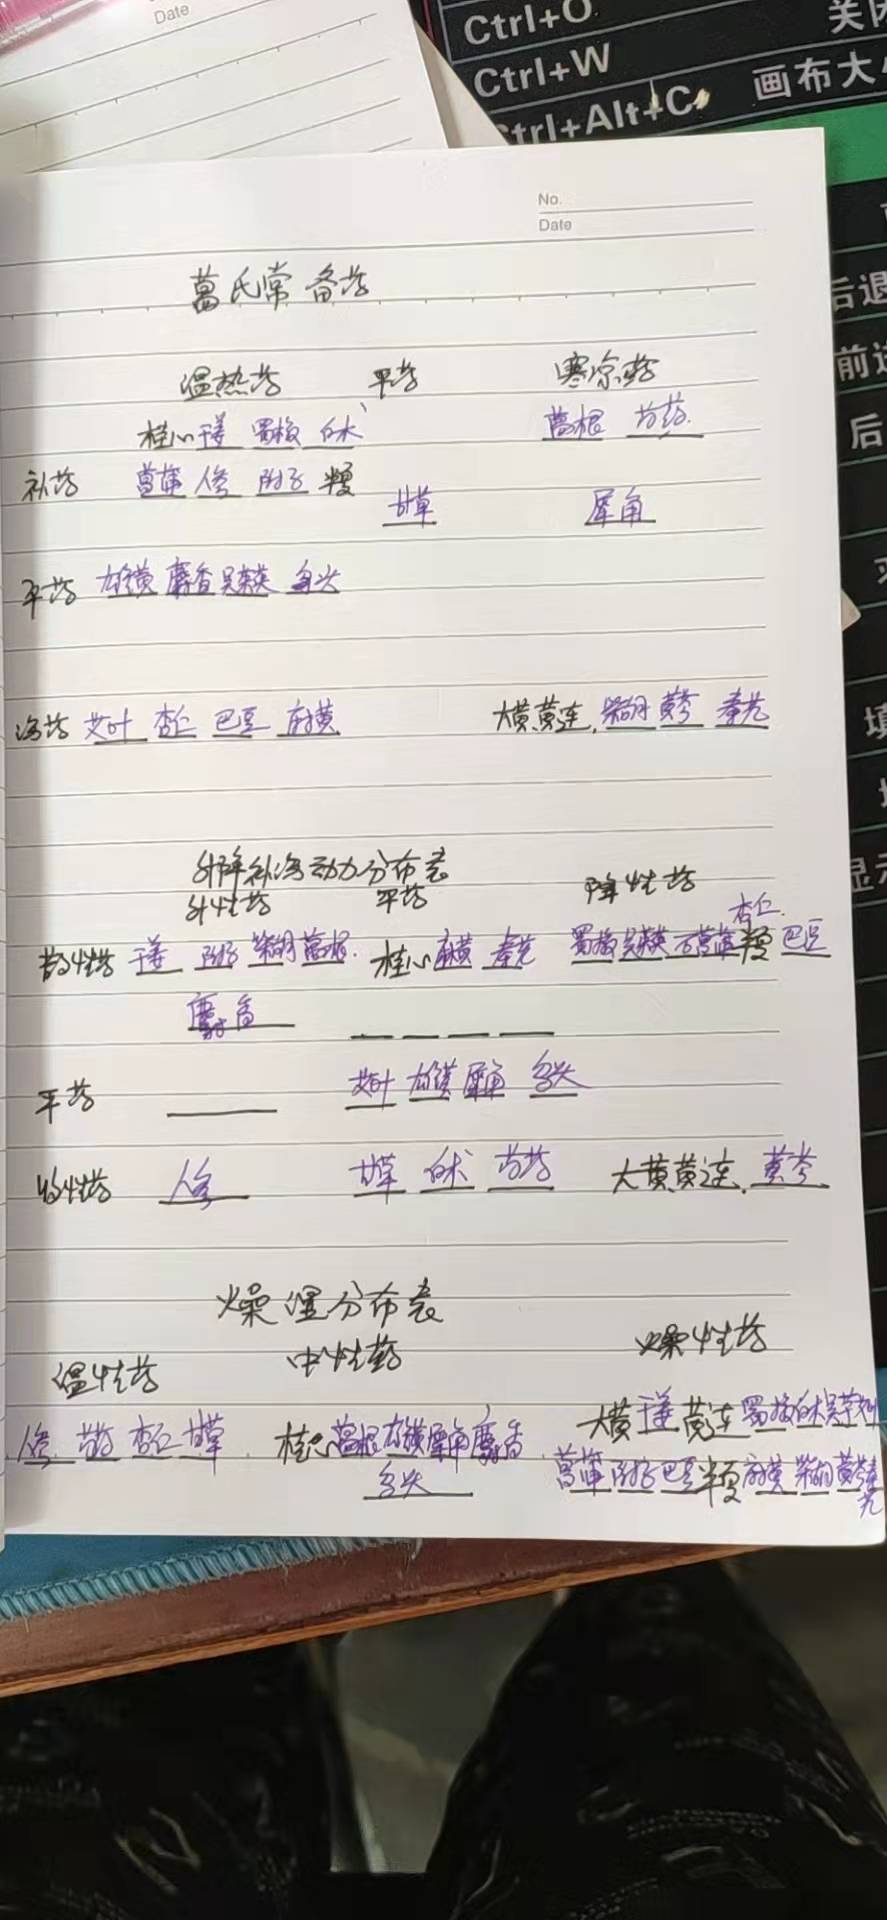 Date
Ctrl+O 关闭
Ctrl+W
Ctrl+Alt+C 画布大小
No.
Date
后退
前进
后
葛氏常备药
温热药 平药 寒凉药
桂心 干姜 蜀椒 白术 葛根 芍药
补药 菖蒲 人参 附子 半夏
甘草 犀角
平药 雄黄 麝香 吴茱萸
泻药 艾叶 杏仁 巴豆 麻黄 大黄 黄连 柴胡 黄芩 秦艽
升降补泻动力分布表
升性药 平药 降性药
杏仁
散性药 干姜 附子 柴胡 葛根 桂心 麻黄 秦艽 蜀椒 吴茱萸 菖蒲 半夏 巴豆
麝香
平药 艾叶 雄黄 犀角
收性药 人参 甘草 白术 芍药 大黄 黄连 黄芩
燥湿分布表
温性药 中性药 燥性药
人参 芍药 杏仁 甘草 桂心 葛根 雄黄 犀角 麝香 大黄 干姜 黄连 蜀椒 白术
菖蒲 附子 巴豆 半夏 麻黄 柴胡 黄芩 秦艽